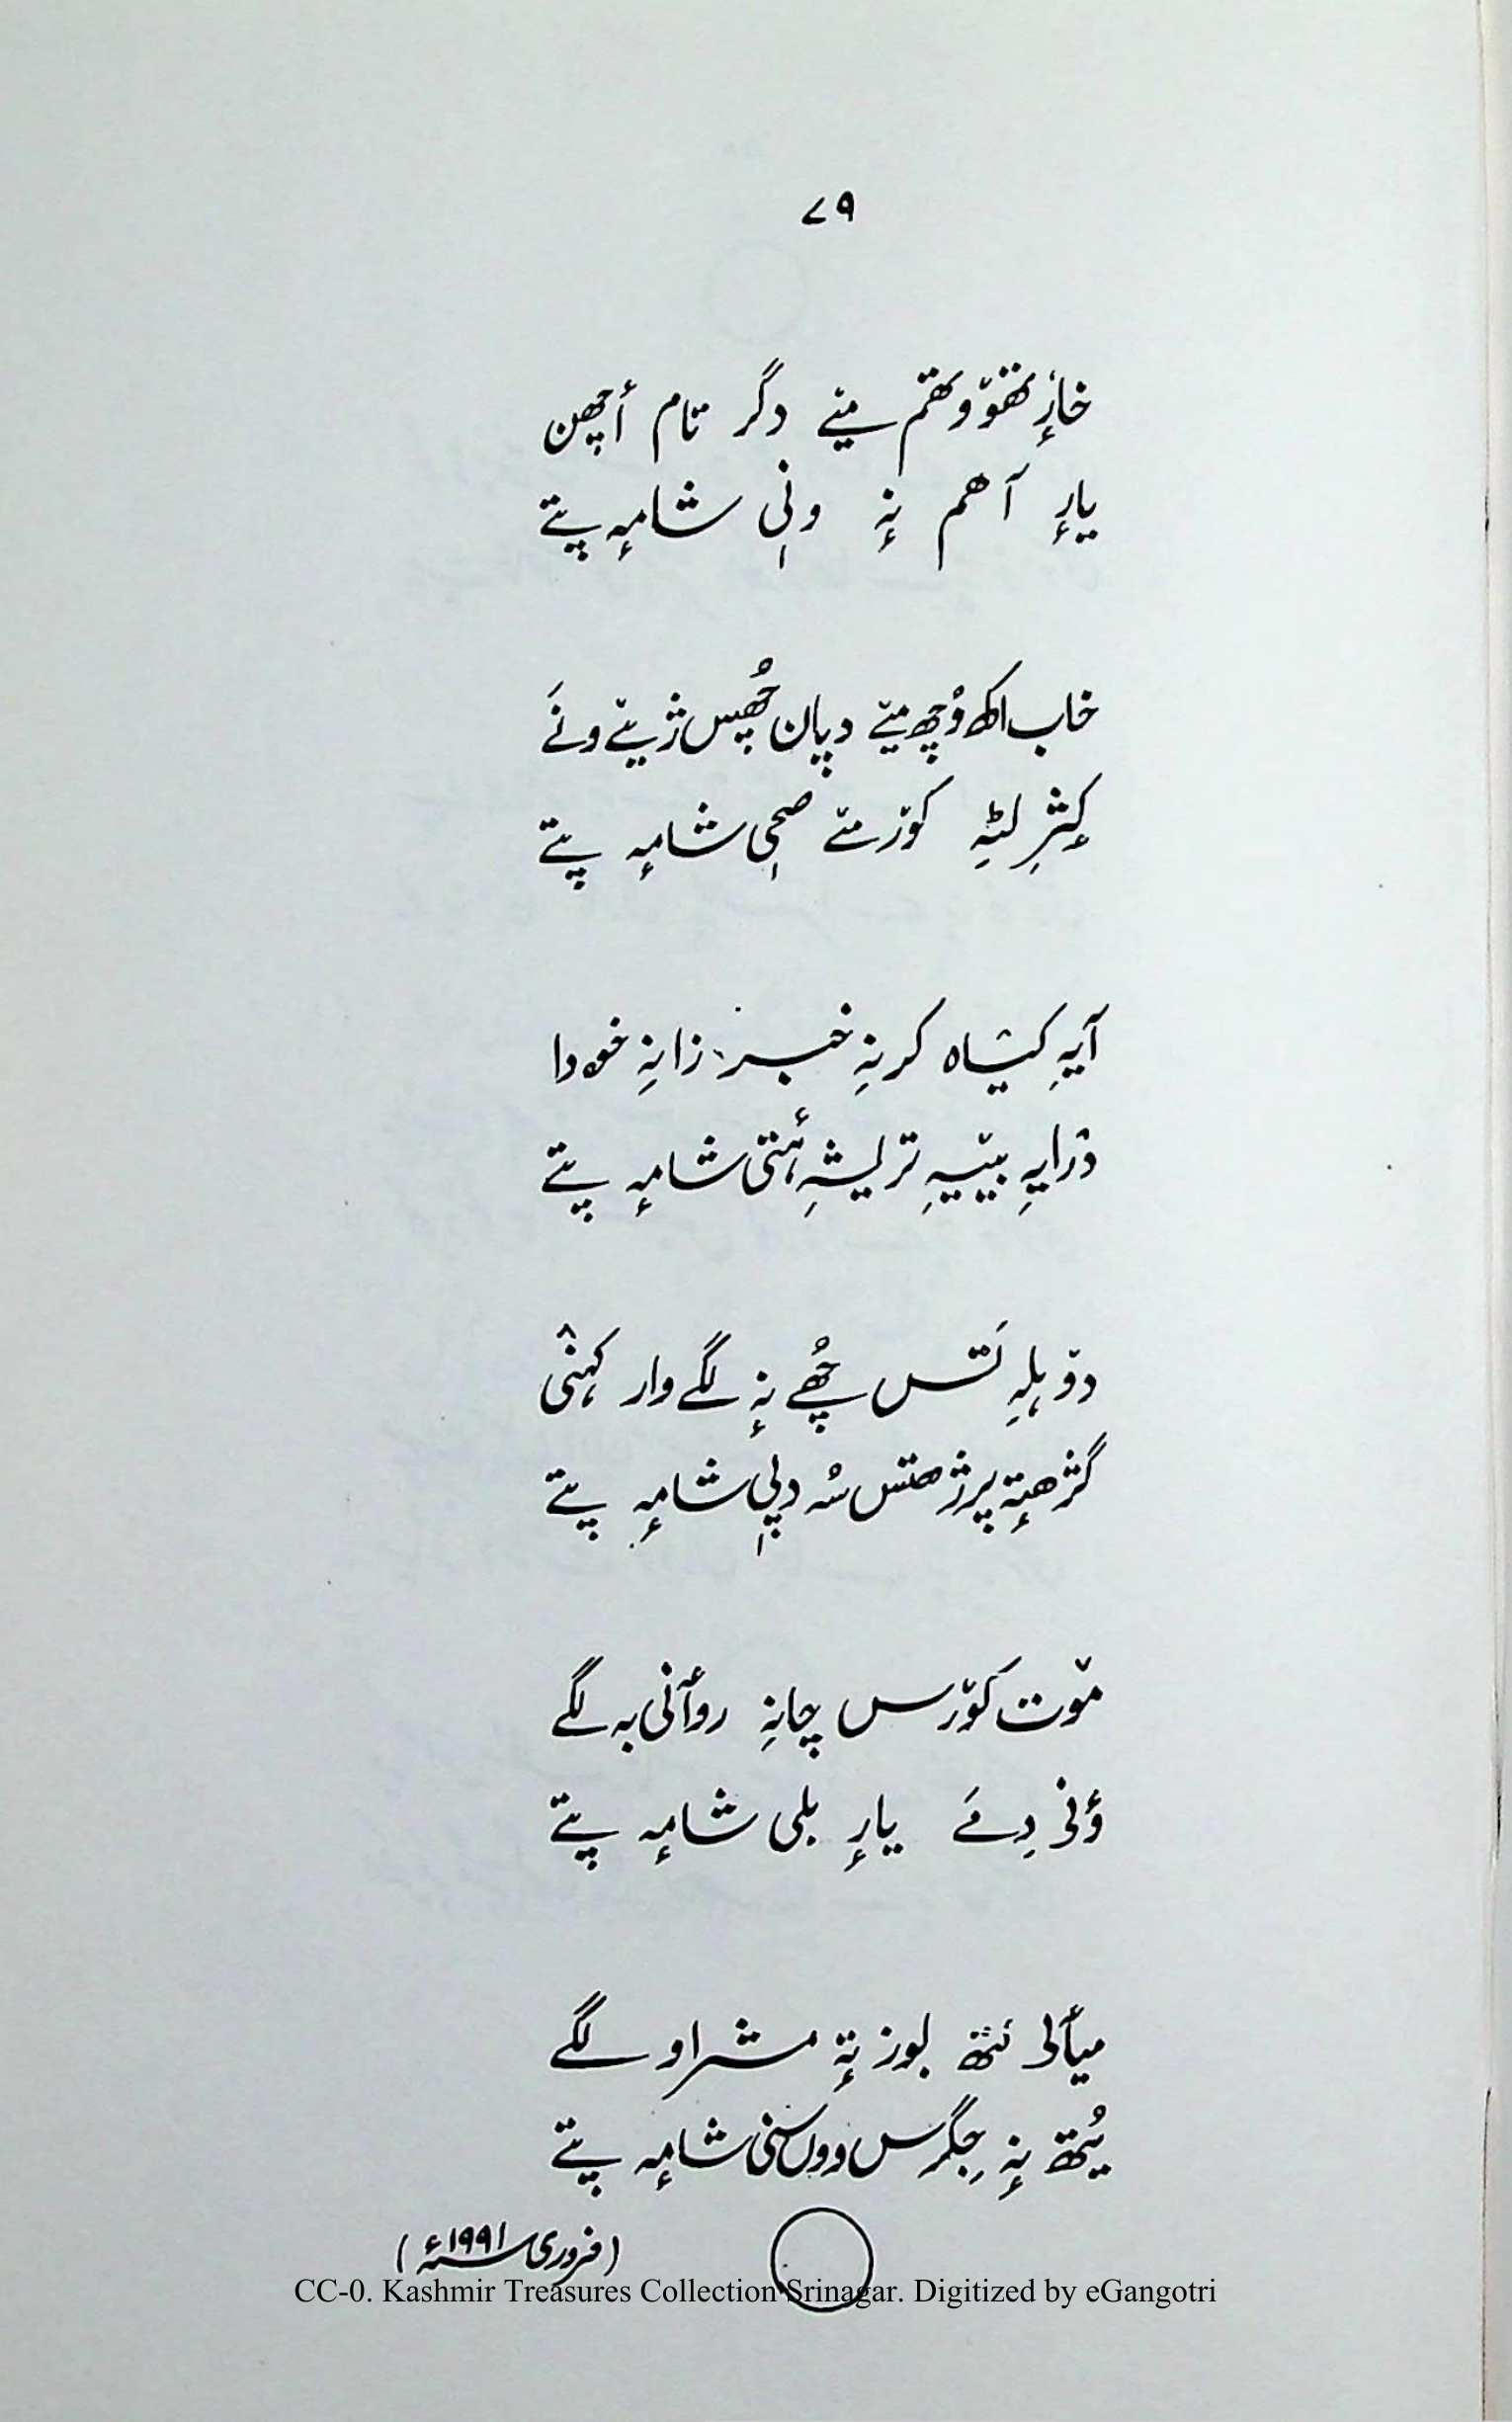 ۷۹
خازٕ تھوٚوتھم میٚے دگر تام أچھن
یارٕ آھم نہٕ ونیٖ شامہٕ پتے
خاب اکھ وُچھ میٚے دپان چُھپس ژیٚے ونَے
کٕژِ لٹہِ کوٚرمتے صحیٖ شامہٕ پتے
آیہِ کیٛاہ کرنہِ خبر، زانہِ خودا
درایہِ بییہِ تریشہِ ۂتی شامہٕ پتے
دوٚہلہِ تَس چُھے نہٕ لگے وار کہنٛی
گژھتہٕ پرژھتس سُہ دپیٖ شامہٕ پتے
موٚت کوٚرس چانہِ روأنی بہ لگے
ؤنی دِمَے یارٕ بلی شامہٕ پتے
میأنی کتھ بوز تہٕ مشراو لگے
یُتھ نہٕ جِگرس ووں سنی شامہٕ پتے
(فروری ۱۹۹۱ء)
CC-0. Kashmir Treasures Collection Srinagar. Digitized by eGangotri